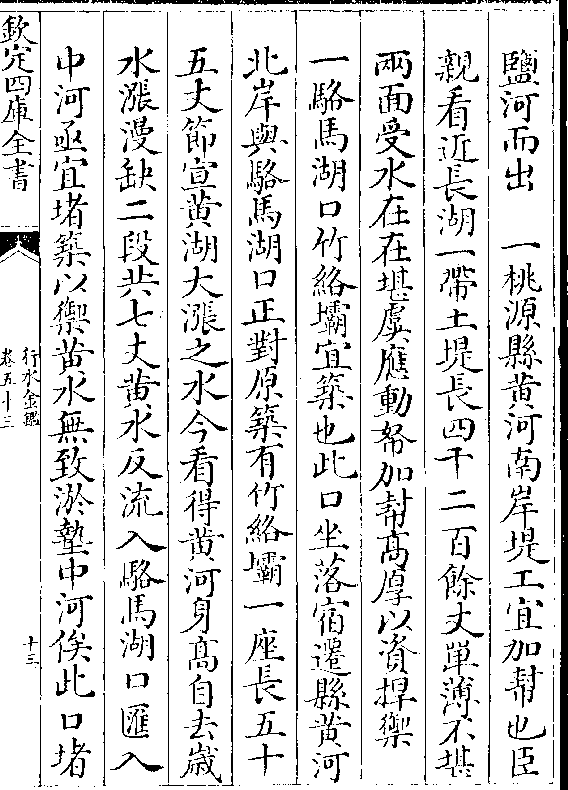 鹽河而出　一桃源縣黄河南岸堤工宜加幇也臣
親看近長湖一帶土堤長四千二百餘丈單薄不堪
兩面受水在在堪虞應動帑加幇髙厚以資捍禦
一駱馬湖口竹絡壩宜築也此口坐落宿遷縣黄河
北岸與駱馬湖口正對原築有竹絡壩一座長五十
五丈節宣黄湖大漲之水今看得黄河身髙自去歲
水漲漫缺二段共七丈黄水反流入駱馬湖口匯入
中河亟宜堵築以禦黄水無致淤墊中河俟此口堵
欽定四庫全書
行水金鑑
卷五十三
十三